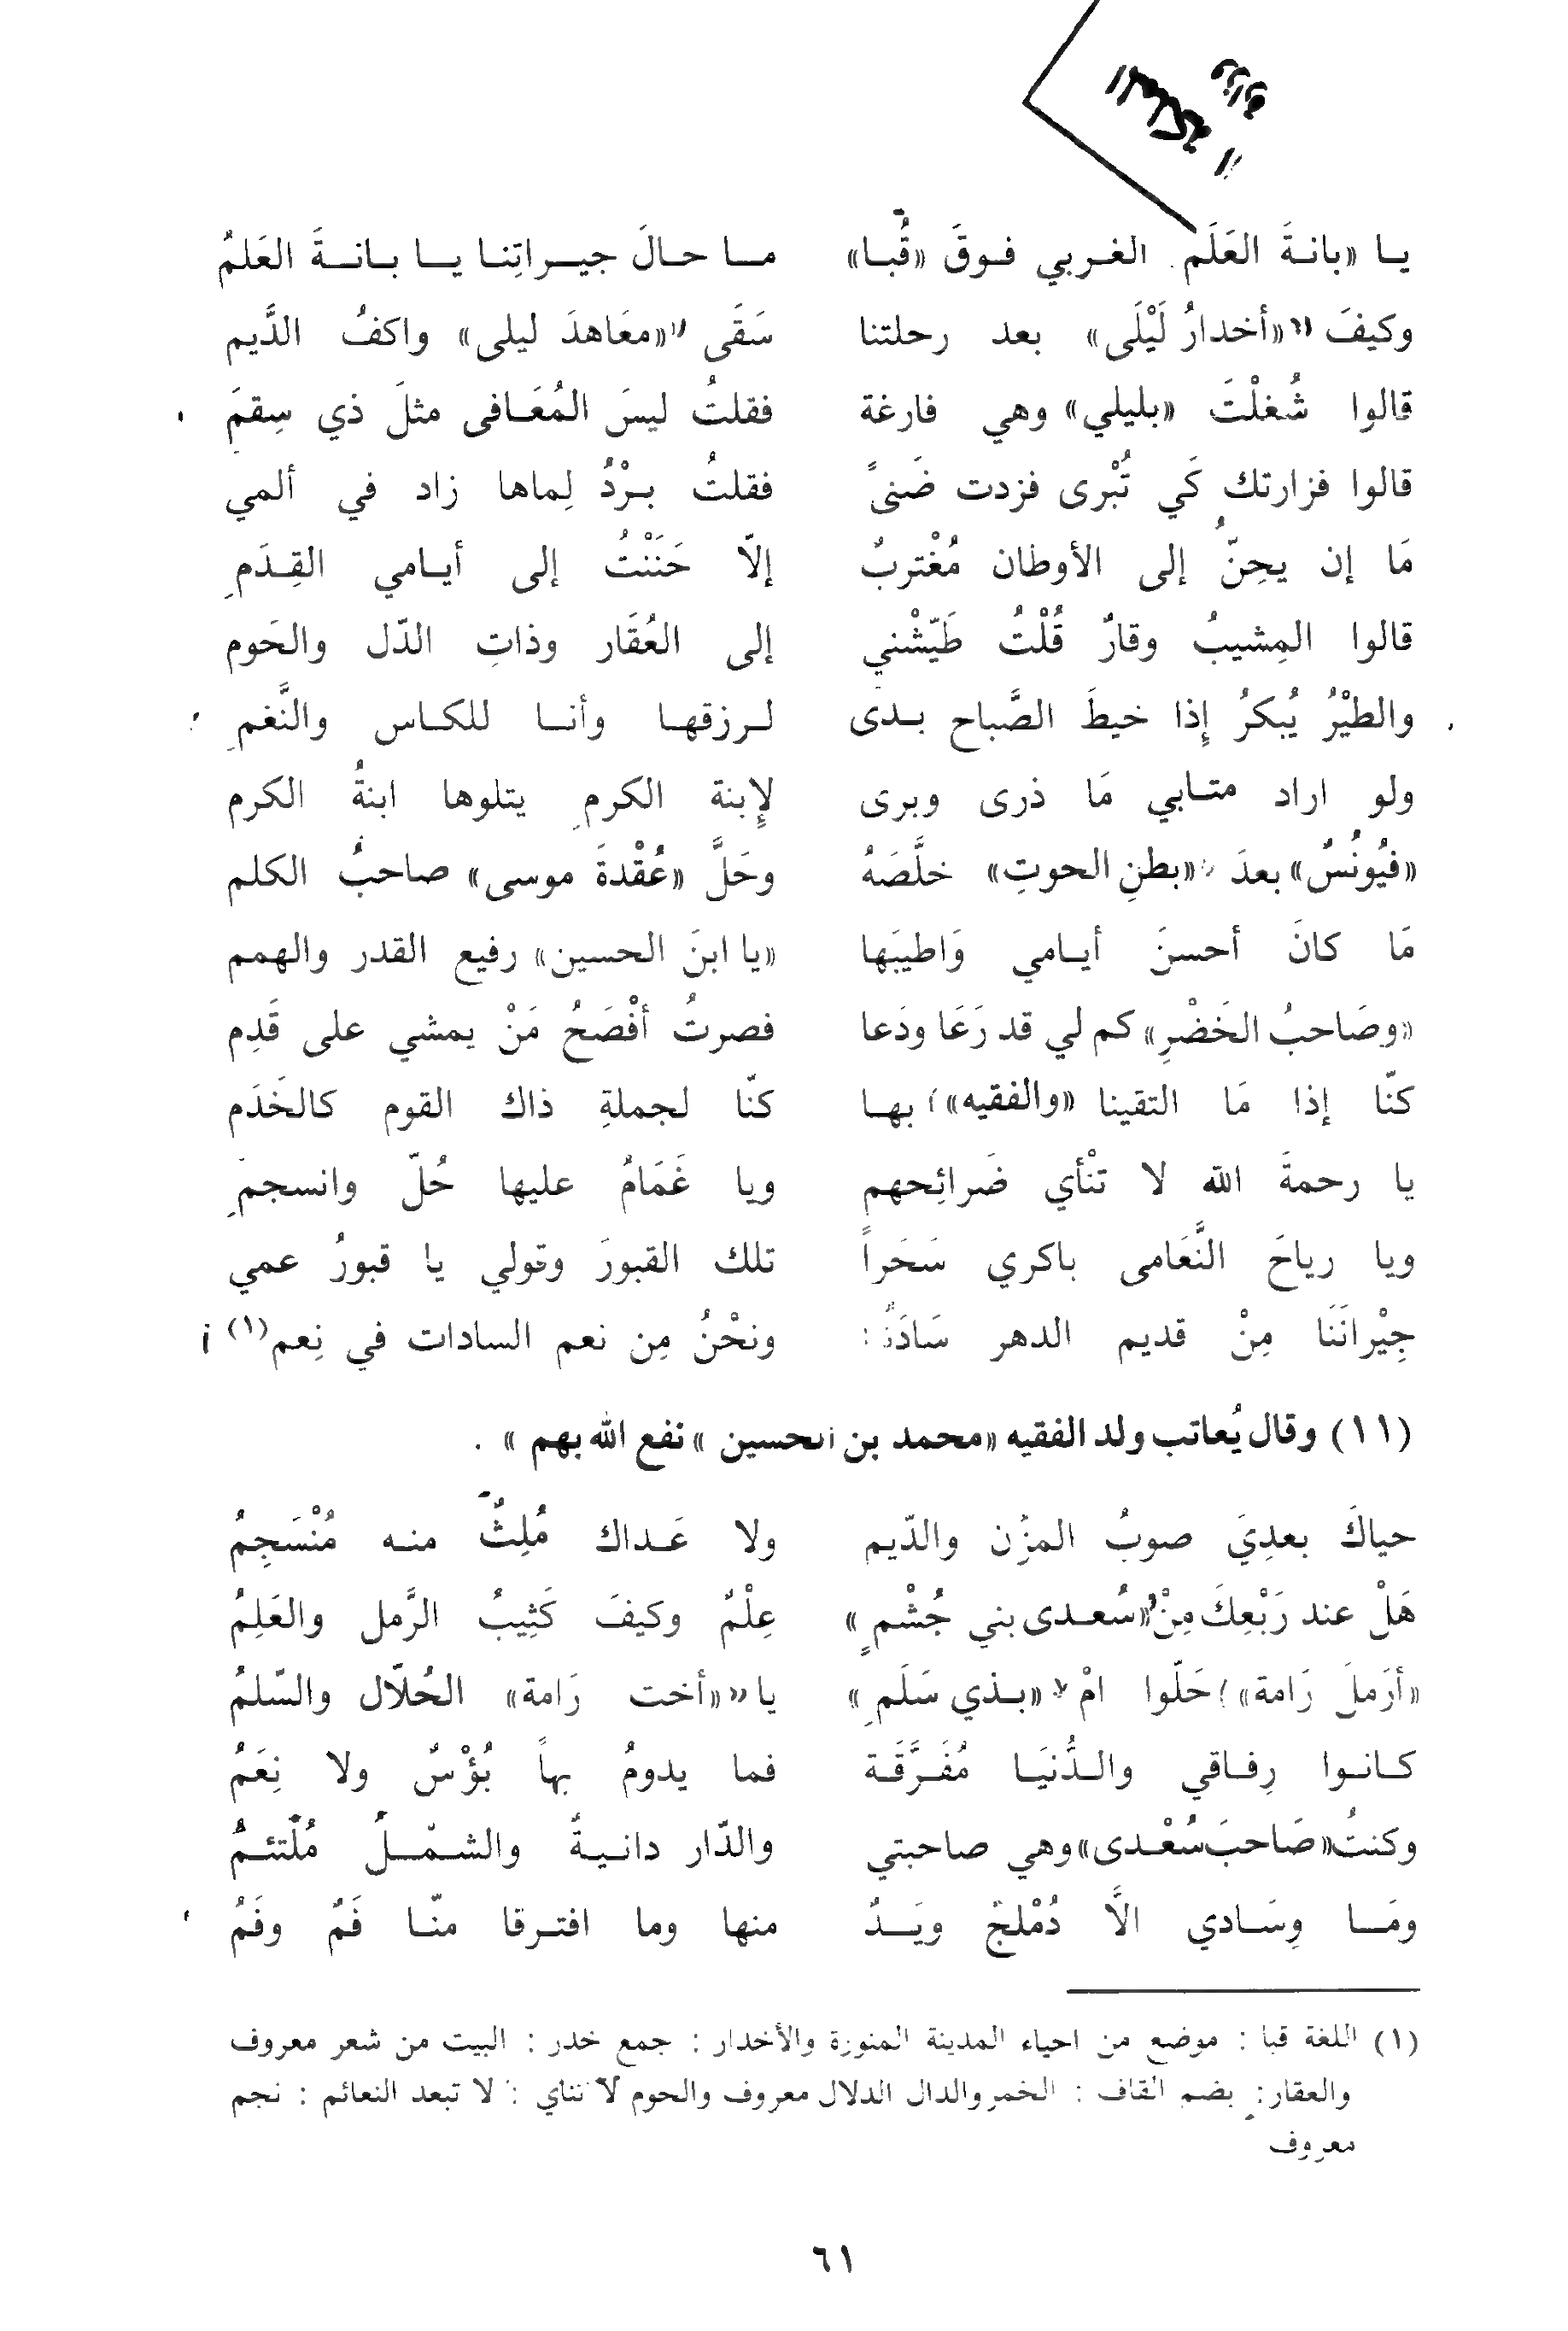 يا «بانةَ العَلَم الغربي فوقَ «قُبا» ما حالَ جيراتِنا يا بانةَ العَلمُ
وكيفَ «أخدارُ لَيْلَى» بعد رحلتنا سَقَى «معَاهدَ ليلى» واكفُ الدَّيم
قالوا شُغلْتَ «بليلي» وهي فارغة فقلتُ ليسَ المُعَافى مثلَ ذي سِقمَ
قالوا فزارتك كَي تُبْرى فزدت ضَنىً فقلتُ بردُ لِماها زاد في ألمي
مَا إن يحِنّ إلى الأوطان مُغْتربٌ إلّا حَنَنْتُ إلى أيامي القِدَمِ
قالوا المِشيبُ وقارٌ قُلْتُ طَيّشْني إلى العُقَار وذاتِ الدّل والحَوم
والطيْرُ يُبكرُ إِذا خيطَ الصَّباح بدى لرزقها وأنا للكاس والنَّغمِ
ولو اراد متابي مَا ذرى وبرى لإِبنة الكرمِ يتلوها ابنةُ الكرم
«فيُونُسٌ» بعدَ «بطنِ الحوتِ» خلَّصَهُ وحَلَّ «عُقْدةَ موسى» صاحبُ الكلم
مَا كانَ أحسنَ أيامي وَاطيبَها «يا ابنَ الحسين» رفيع القدر والهمم
«وصَاحبُ الخَضْرِ» كم لي قد رَعَا ودَعا فصرتُ أفْصَحُ مَنْ يمشي على قَدِم
كنّا إذا مَا التقينا «والفقيه» بها كنّا لجملةِ ذاك القوم كالخَدَم
يا رحمةَ الله لا تنْأي ضَرائِحهم ويا غَمَامُ عليها حُلّ وانسجمِ
ويا رياحَ النَّعَامى باكري سَحَراً تلك القبورَ وقولي يا قبورُ عمي
جِيْرانَنَا مِنْ قديم الدهر سَادَتُنا ونحْنُ مِن نعم السادات في نِعم (١)
(١١) وقال يُعاتب ولد الفقيه «محمد بن الحسين» نفع الله بهم» .
حياكَ بعدِيَ صوبُ المزْن والدّيم ولا عَداك مُلِثٌ منه مُنْسَجِمُ
هَلْ عند رَبْعِكَ مِنْ «سُعدى بني جُشْمٍ» عِلْمٌ وكيفَ كَثِيبُ الرَّمل والعَلِمُ
«أرَملَ رَامة» حَلّوا امْ «بذي سَلَمِ» يا «أخت رَامة» الحُلّال والسّلمُ
كانوا رِفاقي والدُّنيَا مُفَرَّقَة فما يدومُ بهاً بُؤْسٌ ولا نِعَمُ
وكنتُ «صَاحبَ سُعْدى» وهي صاحبتي والدّار دانيةٌ والشمْلُ مُلْتئمُ
ومَا وِسَادي الَّا دُمْلجٌ ويَدٌ منها وما افترقا منّا فَمٌ وفَمُ
(١) اللغة قبا : موضع من احياء المدينة المنورة والأخدار : جمع خدر : البيت من شعر معروف
والعقار: بضم القاف : الخمر والدال الدلال معروف والحوم لا تناي : لا تبعد النعائم : نجم
معروف
٦١